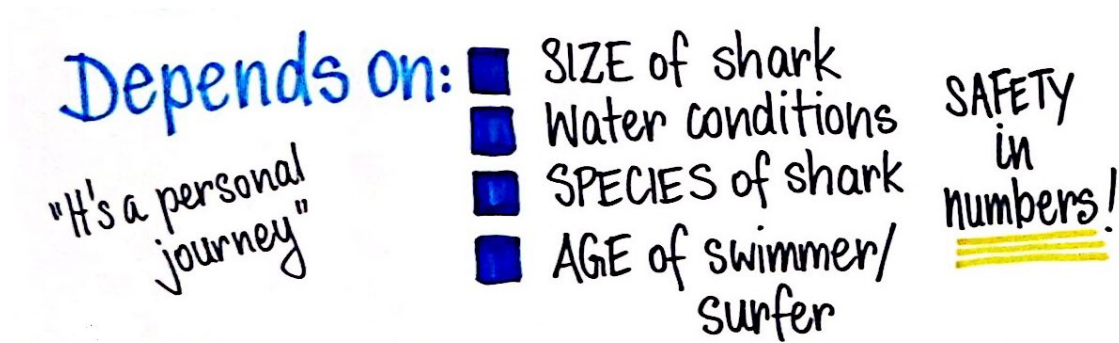 Depends on:
"It's a personal
journey"
SIZE of shark
Water conditions
SPECIES of shark
AGE of swimmer/
surfer
SAFETY
in
numbers!